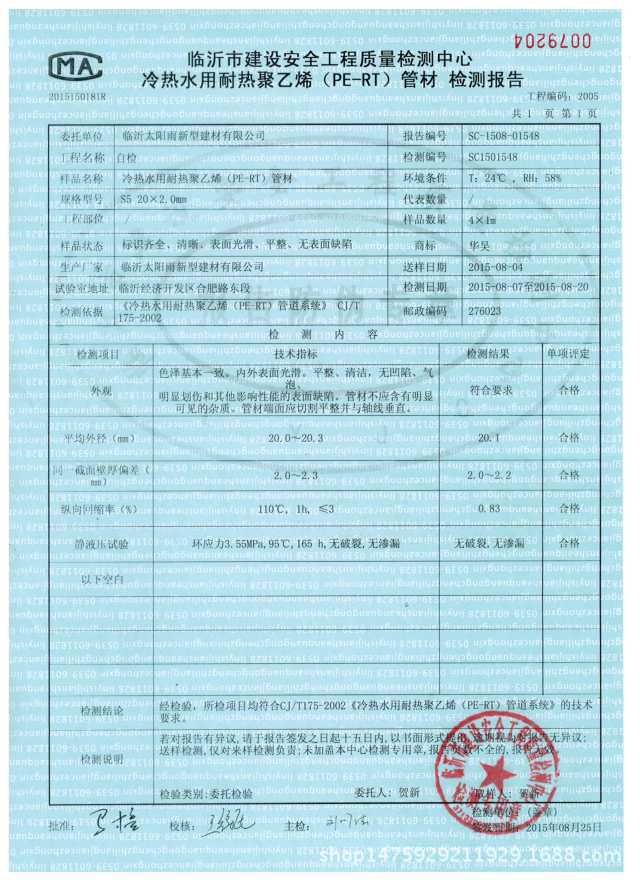 0079204
MA
2015150181R
临沂市建设安全工程质量检测中心
冷热水用耐热聚乙烯（PE-RT）管材 检测报告
工程编码：2005
共 1 页 第 1 页
委托单位 临沂太阳雨新型建材有限公司 报告编号 SC-1508-01548
工程名称 自检 检测编号 SC1501548
样品名称 冷热水用耐热聚乙烯（PE-RT）管材 环境条件 T：24℃ ，RH：58%
规格型号 S5 20×2.0mm 代表数量 /
工程部位 / 样品数量 4×1m
样品状态 标识齐全、清晰、表面光滑、平整、无表面缺陷 商标 华昊
生产厂家 临沂太阳雨新型建材有限公司 送样日期 2015-08-04
试验室地址 临沂经济开发区合肥路东段 检测日期 2015-08-07至2015-08-20
检测依据 《冷热水用耐热聚乙烯（PE-RT）管道系统》 CJ/T 邮政编码 276023
175-2002
检 测 内 容
检测项目 技术指标 检测结果 单项评定
外观 色泽基本一致。内外表面光滑、平整、清洁，无凹陷、气 符合要求 合格
泡、
明显划伤和其他影响性能的表面缺陷。管材不应含有明显
可见的杂质。管材端面应切割平整并与轴线垂直。
平均外径（mm） 20.0~20.3 20.1 合格
同一截面壁厚偏差（ 2.0~2.3 2.0~2.2 合格
mm）
纵向回缩率（%） 110℃，1h，≤3 0.83 合格
静液压试验 环应力3.55MPa,95℃,165 h,无破裂,无渗漏 无破裂,无渗漏 合格
以下空白
检测结论 经检验，所检项目均符合CJ/T175-2002《冷热水用耐热聚乙烯（PE-RT）管道系统》的技术
要求。
检测说明 若对报告有异议,请于报告签发之日起十五日内,以书面形式提出,逾期视为对报告无异议;
送样检测,仅对来样检测负责;未加盖本中心检测专用章,报告页数不全的,报告无效。
检验类别:委托检验 委托人：贺新 取样人：贺新
批准： 校核： 主检：
检测单位：（盖章）
签发日期：2015年08月25日
shop1475929211929.1688.com